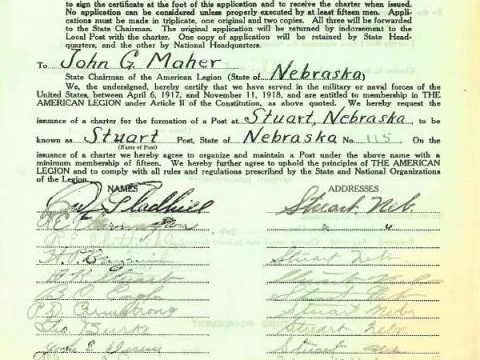 to sign the certificate at the foot of this application and to receive the charter when issued.
No application can be considered unless properly executed by at least fifteen men. Applications
must be made in triplicate, one original and two copies. All three will be forwarded
to the State Chairman. The original application will be returned by indorsement to the
Local Post with the charter. One copy of application will be retained by State Headquarters,
and the other by National Headquarters.
To John G. Maher
State Chairman of the American Legion (State of Nebraska)
We, the undersigned, hereby certify that we have served in the military or naval forces of the
United States, between April 6, 1917, and November 11, 1918, and are entitled to membership in THE
AMERICAN LEGION under Article II of the Constitution, as above quoted. We hereby request the
issuance of a charter for the formation of a Post at Stuart, Nebraska, to be
known as Stuart Post, State of Nebraska No. 115. On the
(Name of Post)
issuance of a charter we hereby agree to organize and maintain a Post under the above name with a
minimum membership of fifteen. We hereby further agree to uphold the principles of THE AMERICAN
LEGION and to comply with all rules and regulations prescribed by the State and National Organizations
of the Legion.
NAMES ADDRESSES
Gladhill Stuart Neb.
" "
Stuart Neb
Armstrong Stuart Neb
Stuart Neb
Stuart